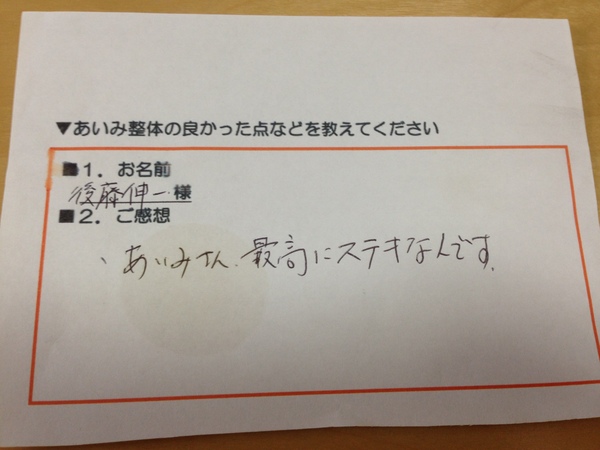 ▼あいみ整体の良かった点などを教えてください
■1．お名前
後藤伸一様
■2．ご感想
、あいみさん、最高にステキなんです。